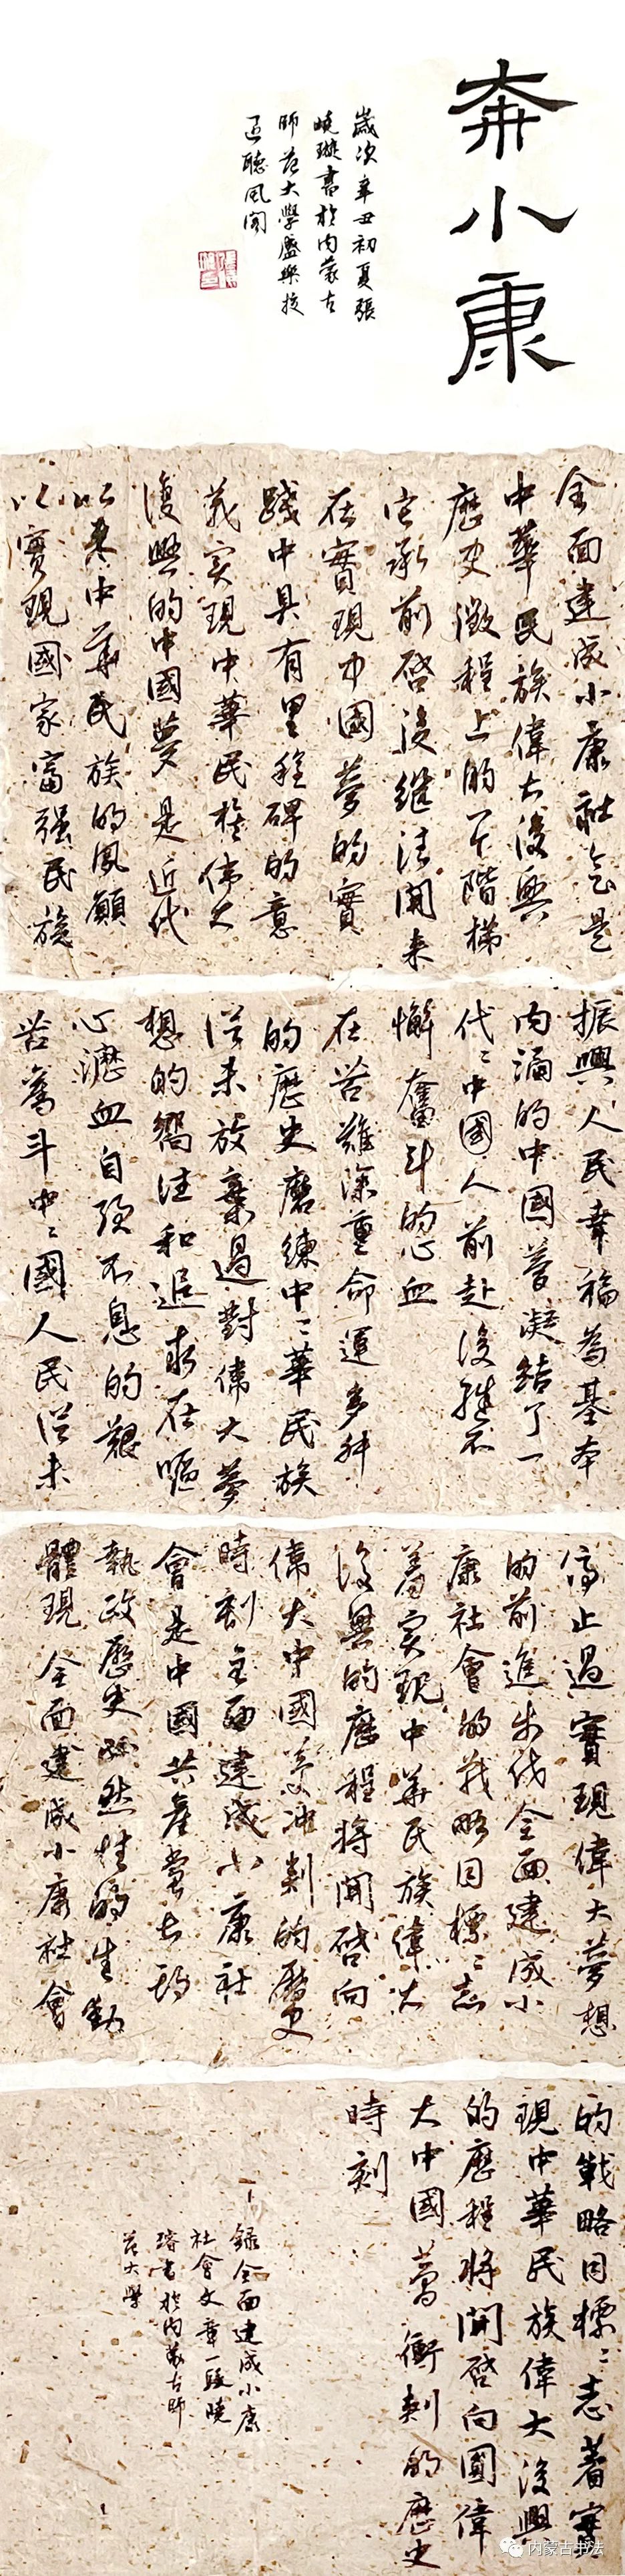 奔小康
歲次辛丑初夏張
曉璇書於內蒙古
師范大學盛樂校
區聽風閣
全面建成小康社会是
中華民族偉大復興
歷史徵程上的一个階梯
它承前啓後继往開来
在實現中國夢的實
踐中具有里程碑的意
義实現中華民族伟大
復興的中國夢是近代
以来中華民族的夙願
以實現國家富强民族
振興人民幸福為基本
内涵的中國夢凝結了一
代〻中國人前赴後繼不
懈奮斗的心血
在苦難深重命運多舛
的歷史磨練中〻華民族
從未放棄過對偉大夢
想的嚮往和追求在嘔
心瀝血自强不息的艱
苦奮斗中〻國人民從未
停止過實現偉大夢想
的前進步伐全面建成小
康社會的战略目標〻志
着实現中華民族偉大
復興的歷程将開啓向
偉大中國夢冲刺的歷史
時刻全面建成小康社
會是中國共產黨長期
執政歷史必然性的生動
體現全面建成小康社會
的戰略目標〻志着實
現中華民族偉大復興
的歷程将開啓向圆偉
大中國夢衝刺的歷史
時刻
録全面建成小康
社會文章一段曉
璿書於内蒙古師
范大學
内蒙古书法